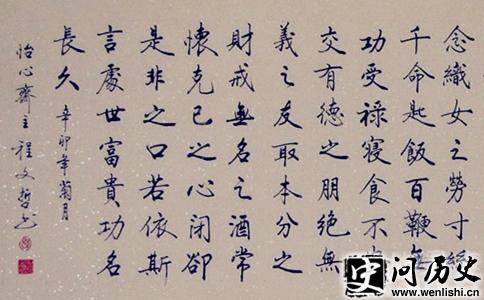 念織女之勞寸絲
千命匙飯百鞭無
功受祿寢食不
交有德之朋絕無
義之友取本分之
財戒無名之酒常
懷克己之心閉卻
是非之口若依斯
言處世富貴功名
長久 辛卯年菊月
怡心齋主程文哲书
史问历史
www.wenlishi.cn